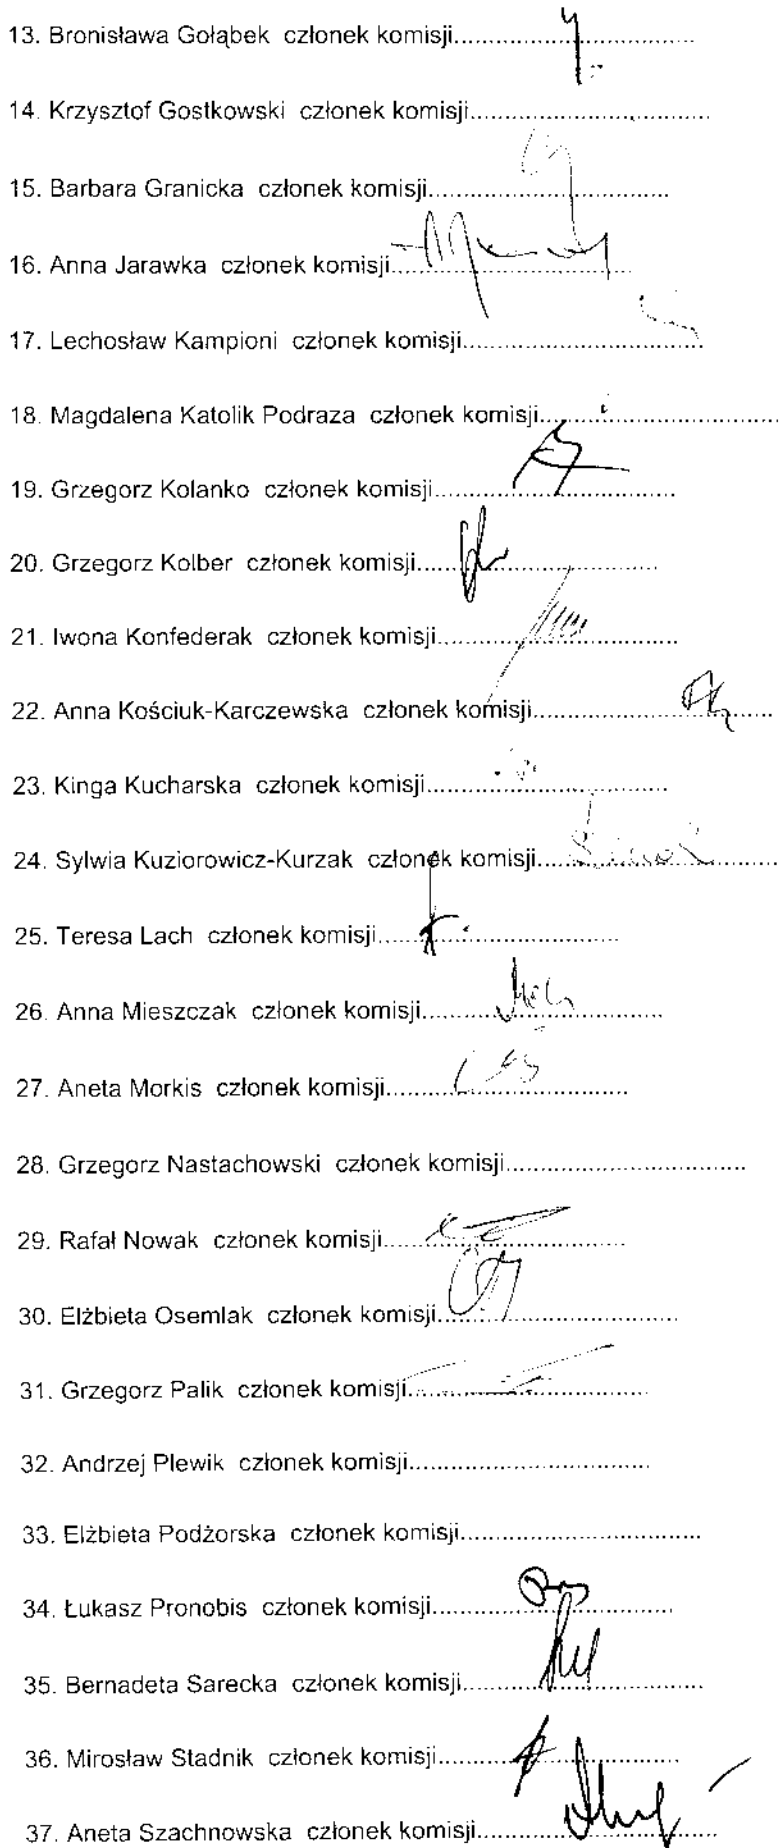 13. Bronisława Gołąbek członek komisji..................................
14. Krzysztof Gostkowski członek komisji..................................
15. Barbara Granicka członek komisji..................................
16. Anna Jarawka członek komisji..................................
17. Lechosław Kampioni członek komisji..................................
18. Magdalena Katolik Podraza członek komisji..................................
19. Grzegorz Kolanko członek komisji..................................
20. Grzegorz Kolber członek komisji..................................
21. Iwona Konfederak członek komisji..................................
22. Anna Kościuk-Karczewska członek komisji..................................
23. Kinga Kucharska członek komisji..................................
24. Sylwia Kuziorowicz-Kurzak członek komisji..................................
25. Teresa Lach członek komisji..................................
26. Anna Mieszczak członek komisji..................................
27. Aneta Morkis członek komisji..................................
28. Grzegorz Nastachowski członek komisji..................................
29. Rafał Nowak członek komisji..................................
30. Elżbieta Osemlak członek komisji..................................
31. Grzegorz Palik członek komisji..................................
32. Andrzej Plewik członek komisji..................................
33. Elżbieta Podżorska członek komisji..................................
34. Łukasz Pronobis członek komisji..................................
35. Bernadeta Sarecka członek komisji..................................
36. Mirosław Stadnik członek komisji..................................
37. Aneta Szachnowska członek komisji..................................